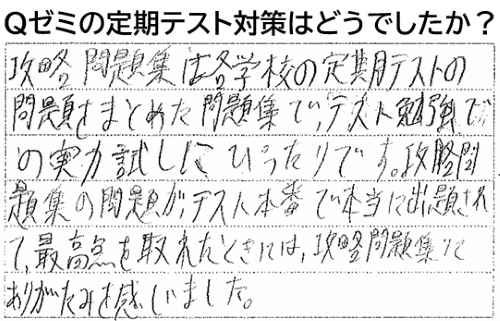 Qゼミの定期テスト対策はどうでしたか?
攻略問題集は各学校の定期テストの
問題をまとめた問題集で,テスト勉強で
の実力試しにぴったりです。攻略問
題集の問題が,テスト本番で本当に出題され
て,最高点を取れたときには,攻略問題集に
ありがたみを感じました。